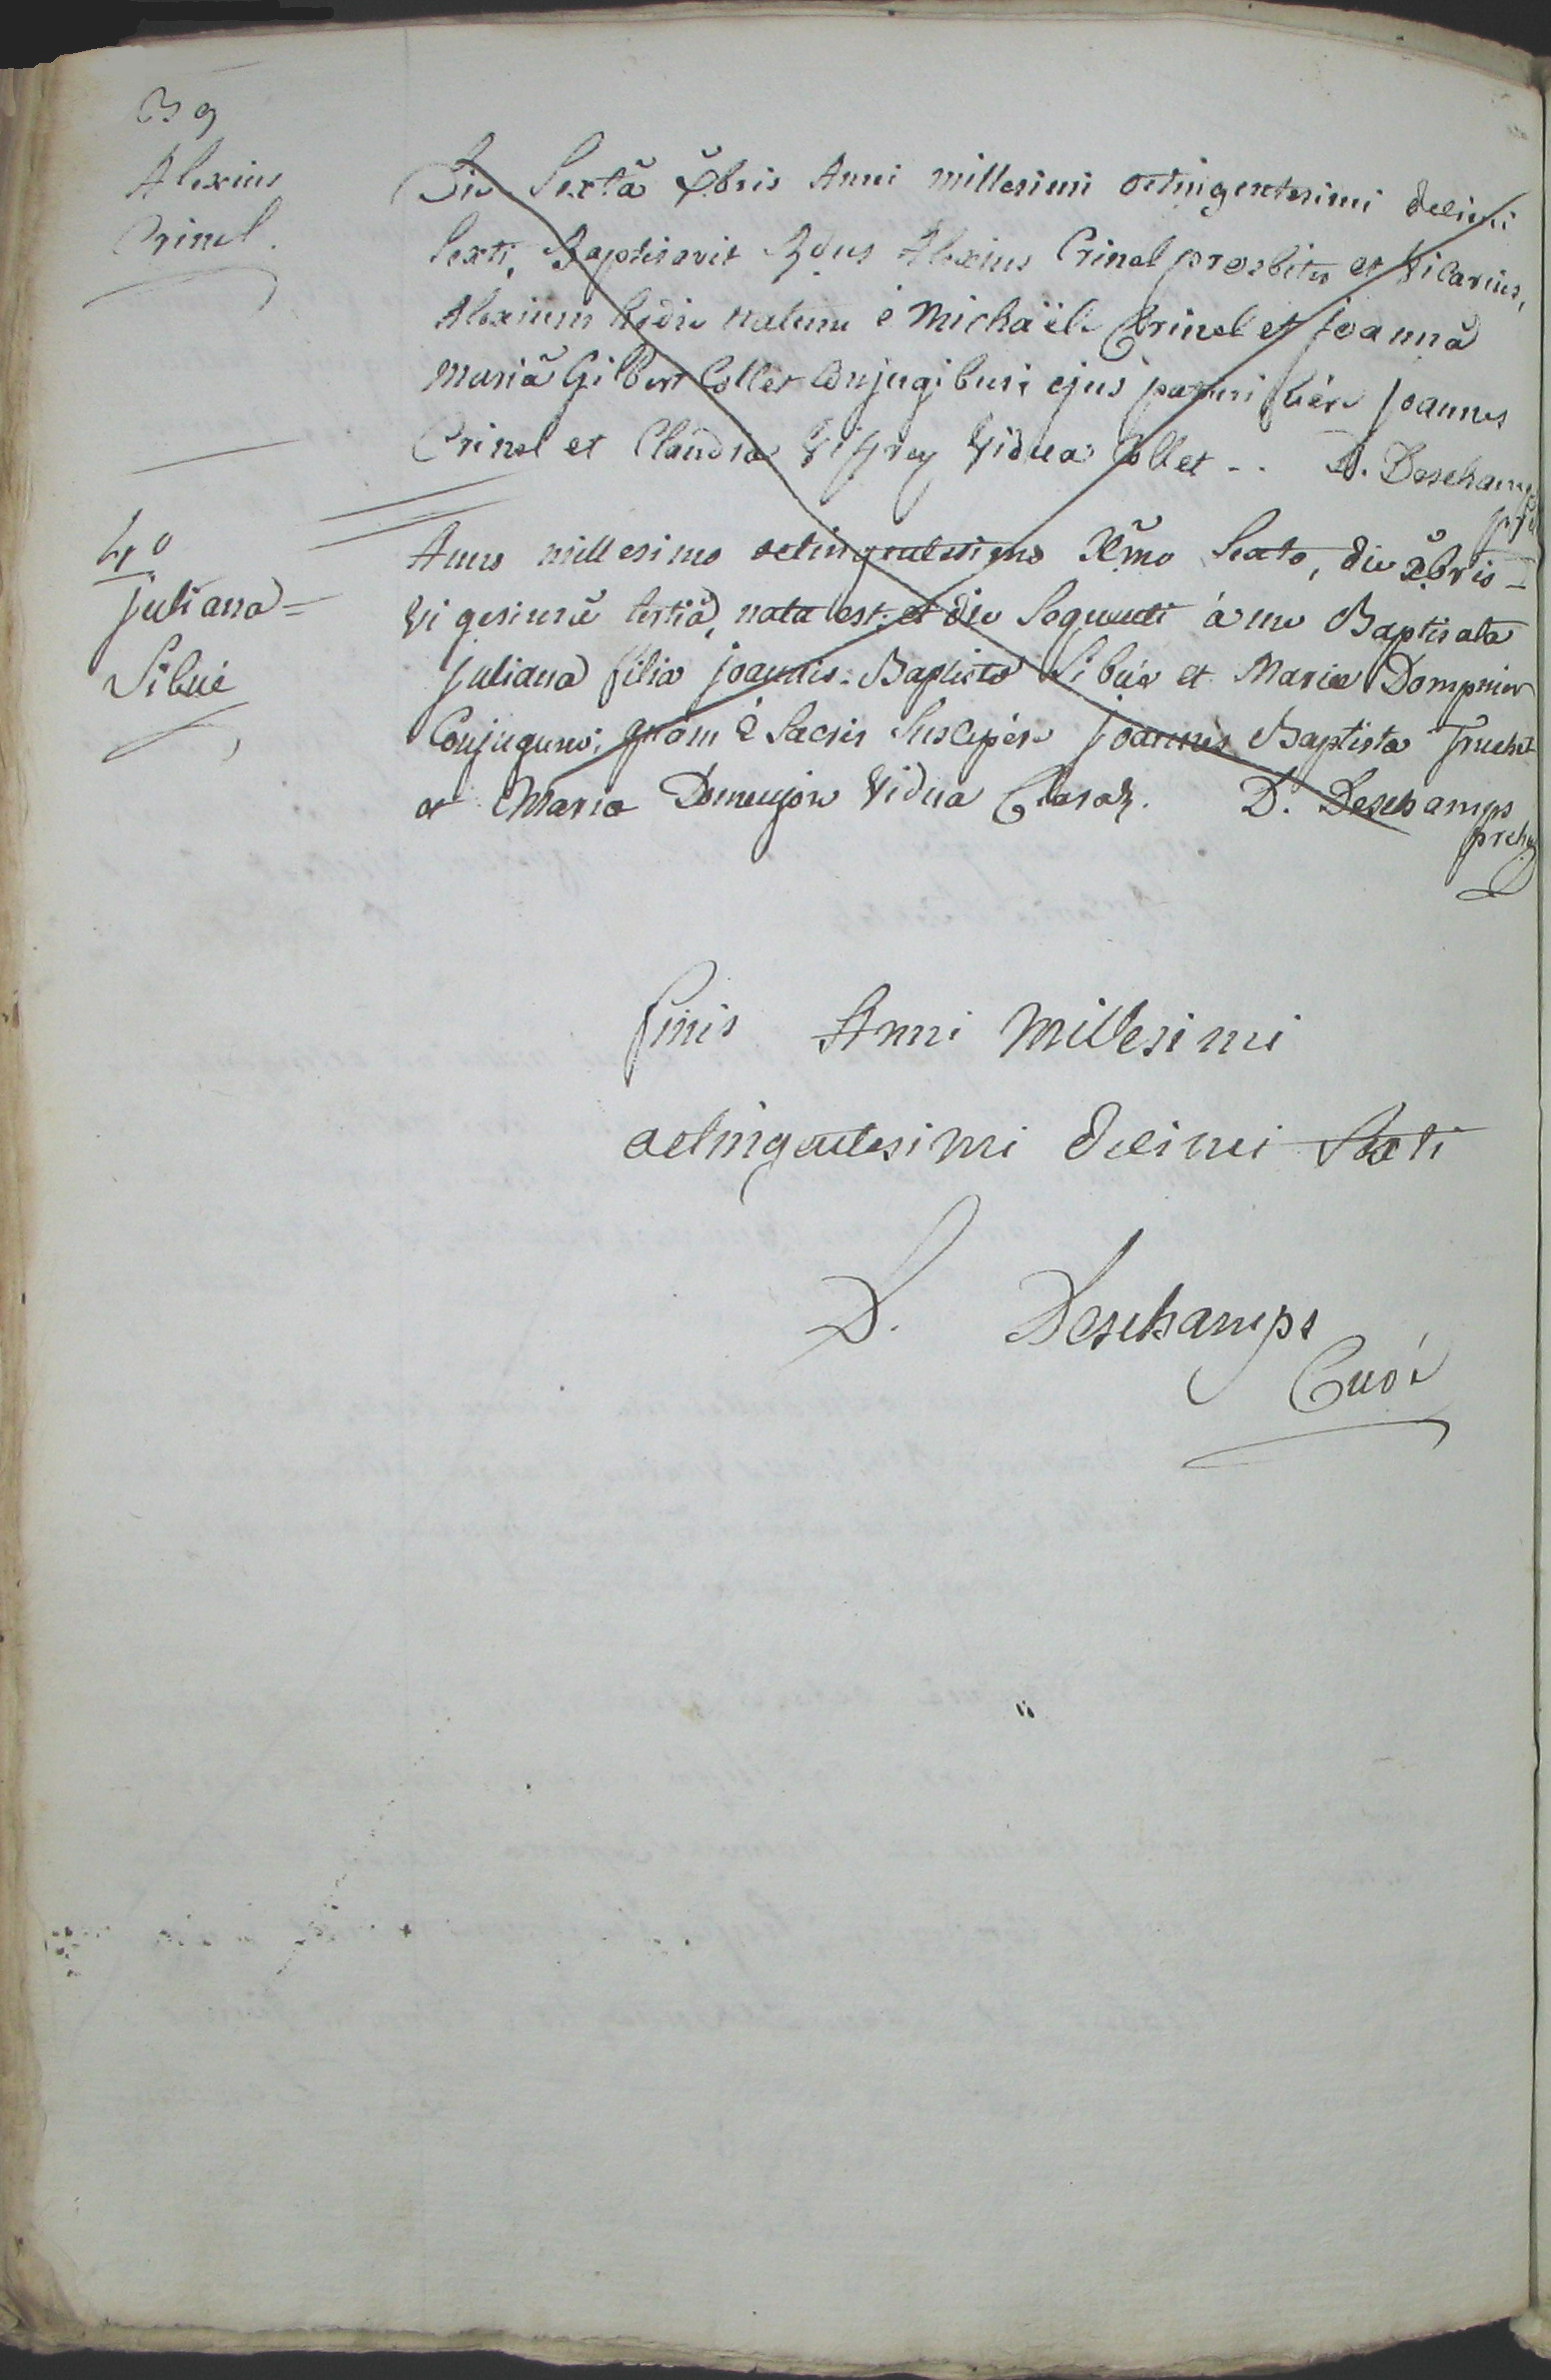 39
Alexius
Crinel.
Die Sextâ Xbris Anni millesimi octingentesimi decimi
Sexti, Baptisavit Rdus Alexius Crinel presbiter et Vicarius,
Alexium hodie natum è Michaële Crinel et Joannâ
Mariâ Gilbert Collet Conjugibus; ejus patrini fuêre Joannes
Crinel et Claudia Viffrey Vidua Collet -. D. Deschamps
40
Juliana =
Sibué
Anno millesimo octingentesimo Xmo Sexto, die Xbris -
Vigesimâ tertiâ, nata est; et die Sequenti à me Baptisata
Juliana filia Joannis-Baptistæ Sibüe et Mariæ Dompnier
Conjugum; quam è Sacris Suscepêre Joannes Baptista Truchet
et Maria Domenjon Vidua Claraz. D. Deschamps
finis Anni Millesimi
octingentesimi decimi Sexti
D. Deschamps
Curé